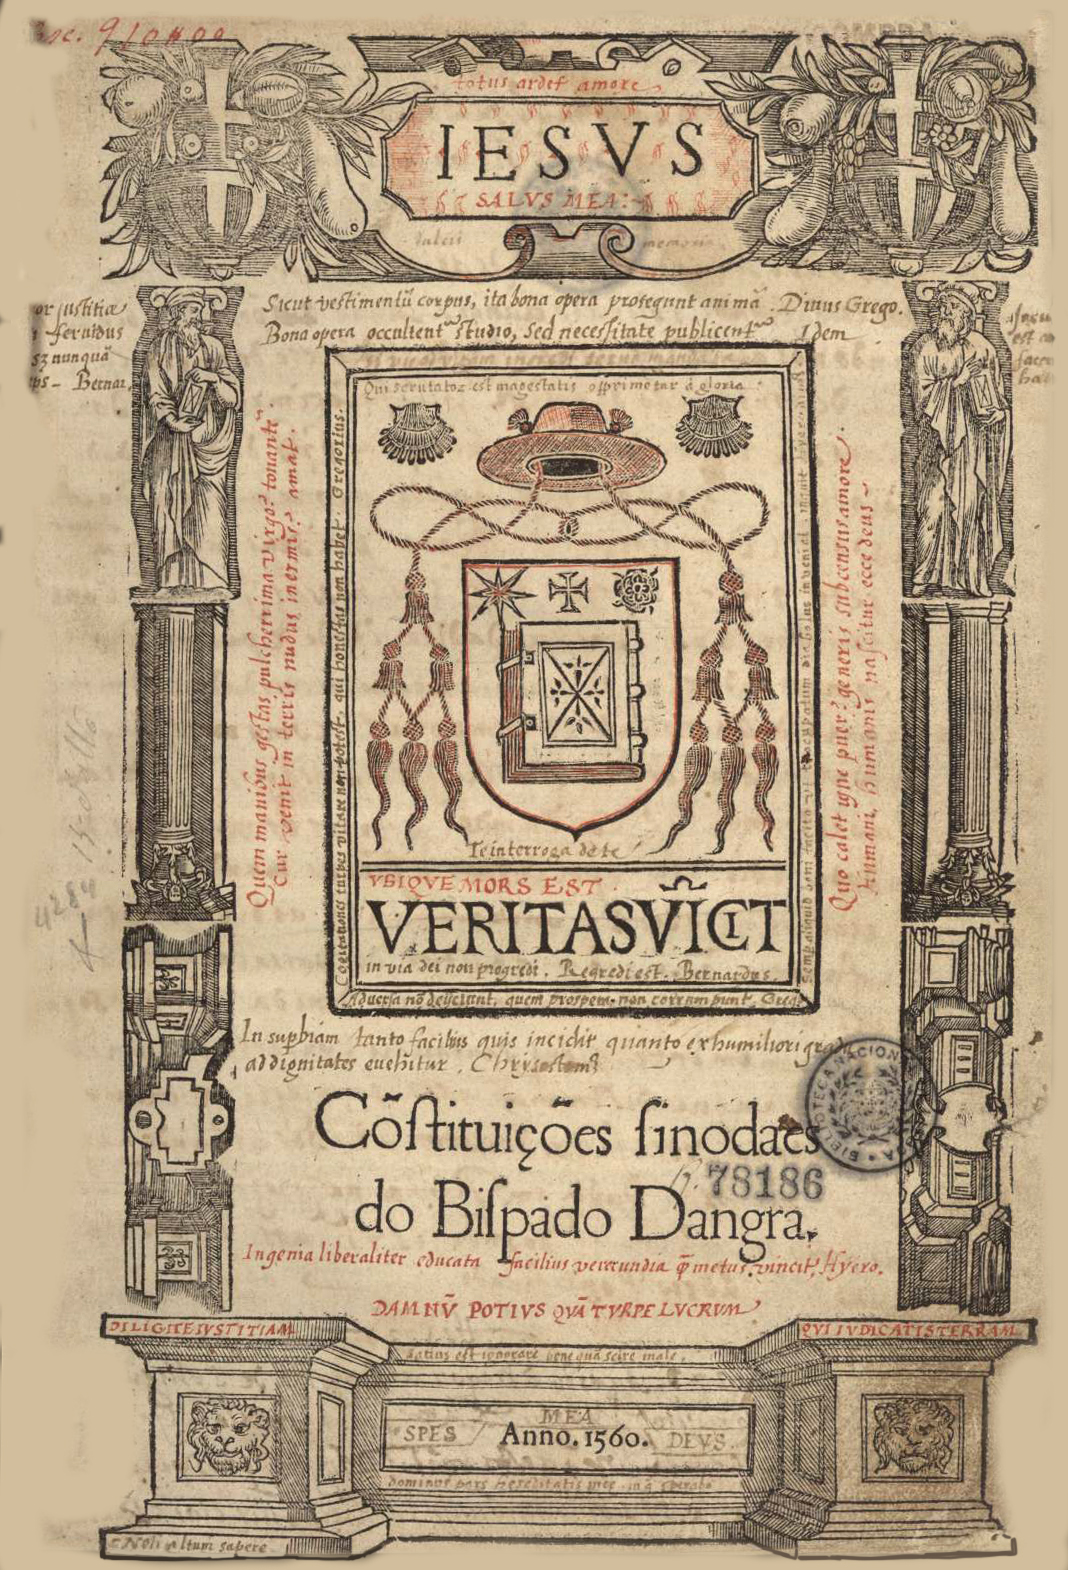 totus ardet amore
IESVS
SALVS MEA:
memoria
or justitiæ
fervidus
nunquã
Bernar.
Sicut vestimentũ corpus, ita bona opera protegunt animã. Divus Grego.
Bona opera occultent studio, sed necessitate publicent Idem
Qui scrutator est magestatis opprimetur a gloria
Quem manibus gestas pulcherrima virgo tonante
Cur venit in terris nudus inermis amat.
Cogitationes turpes vitare non potest, qui honestas non habet. Gregorius.
Quo calet igne puer? generis succensus amore
humani, humanis nascitur ecce deus
Te interroga de te
VBIQVE MORS EST.
VERITAS VĨCIT
in via dei non progredi. Regredi est. Bernardus.
Adversa nõ deijciunt, quem prospera non corrumpunt. Grego
In supbiam tanto facilius quis incidit quanto ex humiliori gradu
ad dignitates evehitur. Chrysostom9
Cõstituições sinodaes
BIBLIOTECA NACIONAL
R. 78186
do Bispado Dangra.
Ingenia liberaliter educata facilius verecundia q̃ metus vincit, Hyero.
DAMNŨ POTIVS QVÃ TVRPE LVCRVM
DILIGITE IVSTITIAM
QVI IVDICATIS TERRAM
satius est ignorare bene quã scire male.
MEA
SPES
Anno. 1560.
DEVS.
dominus pars hereditatis mee
Noli altum sapere
4284